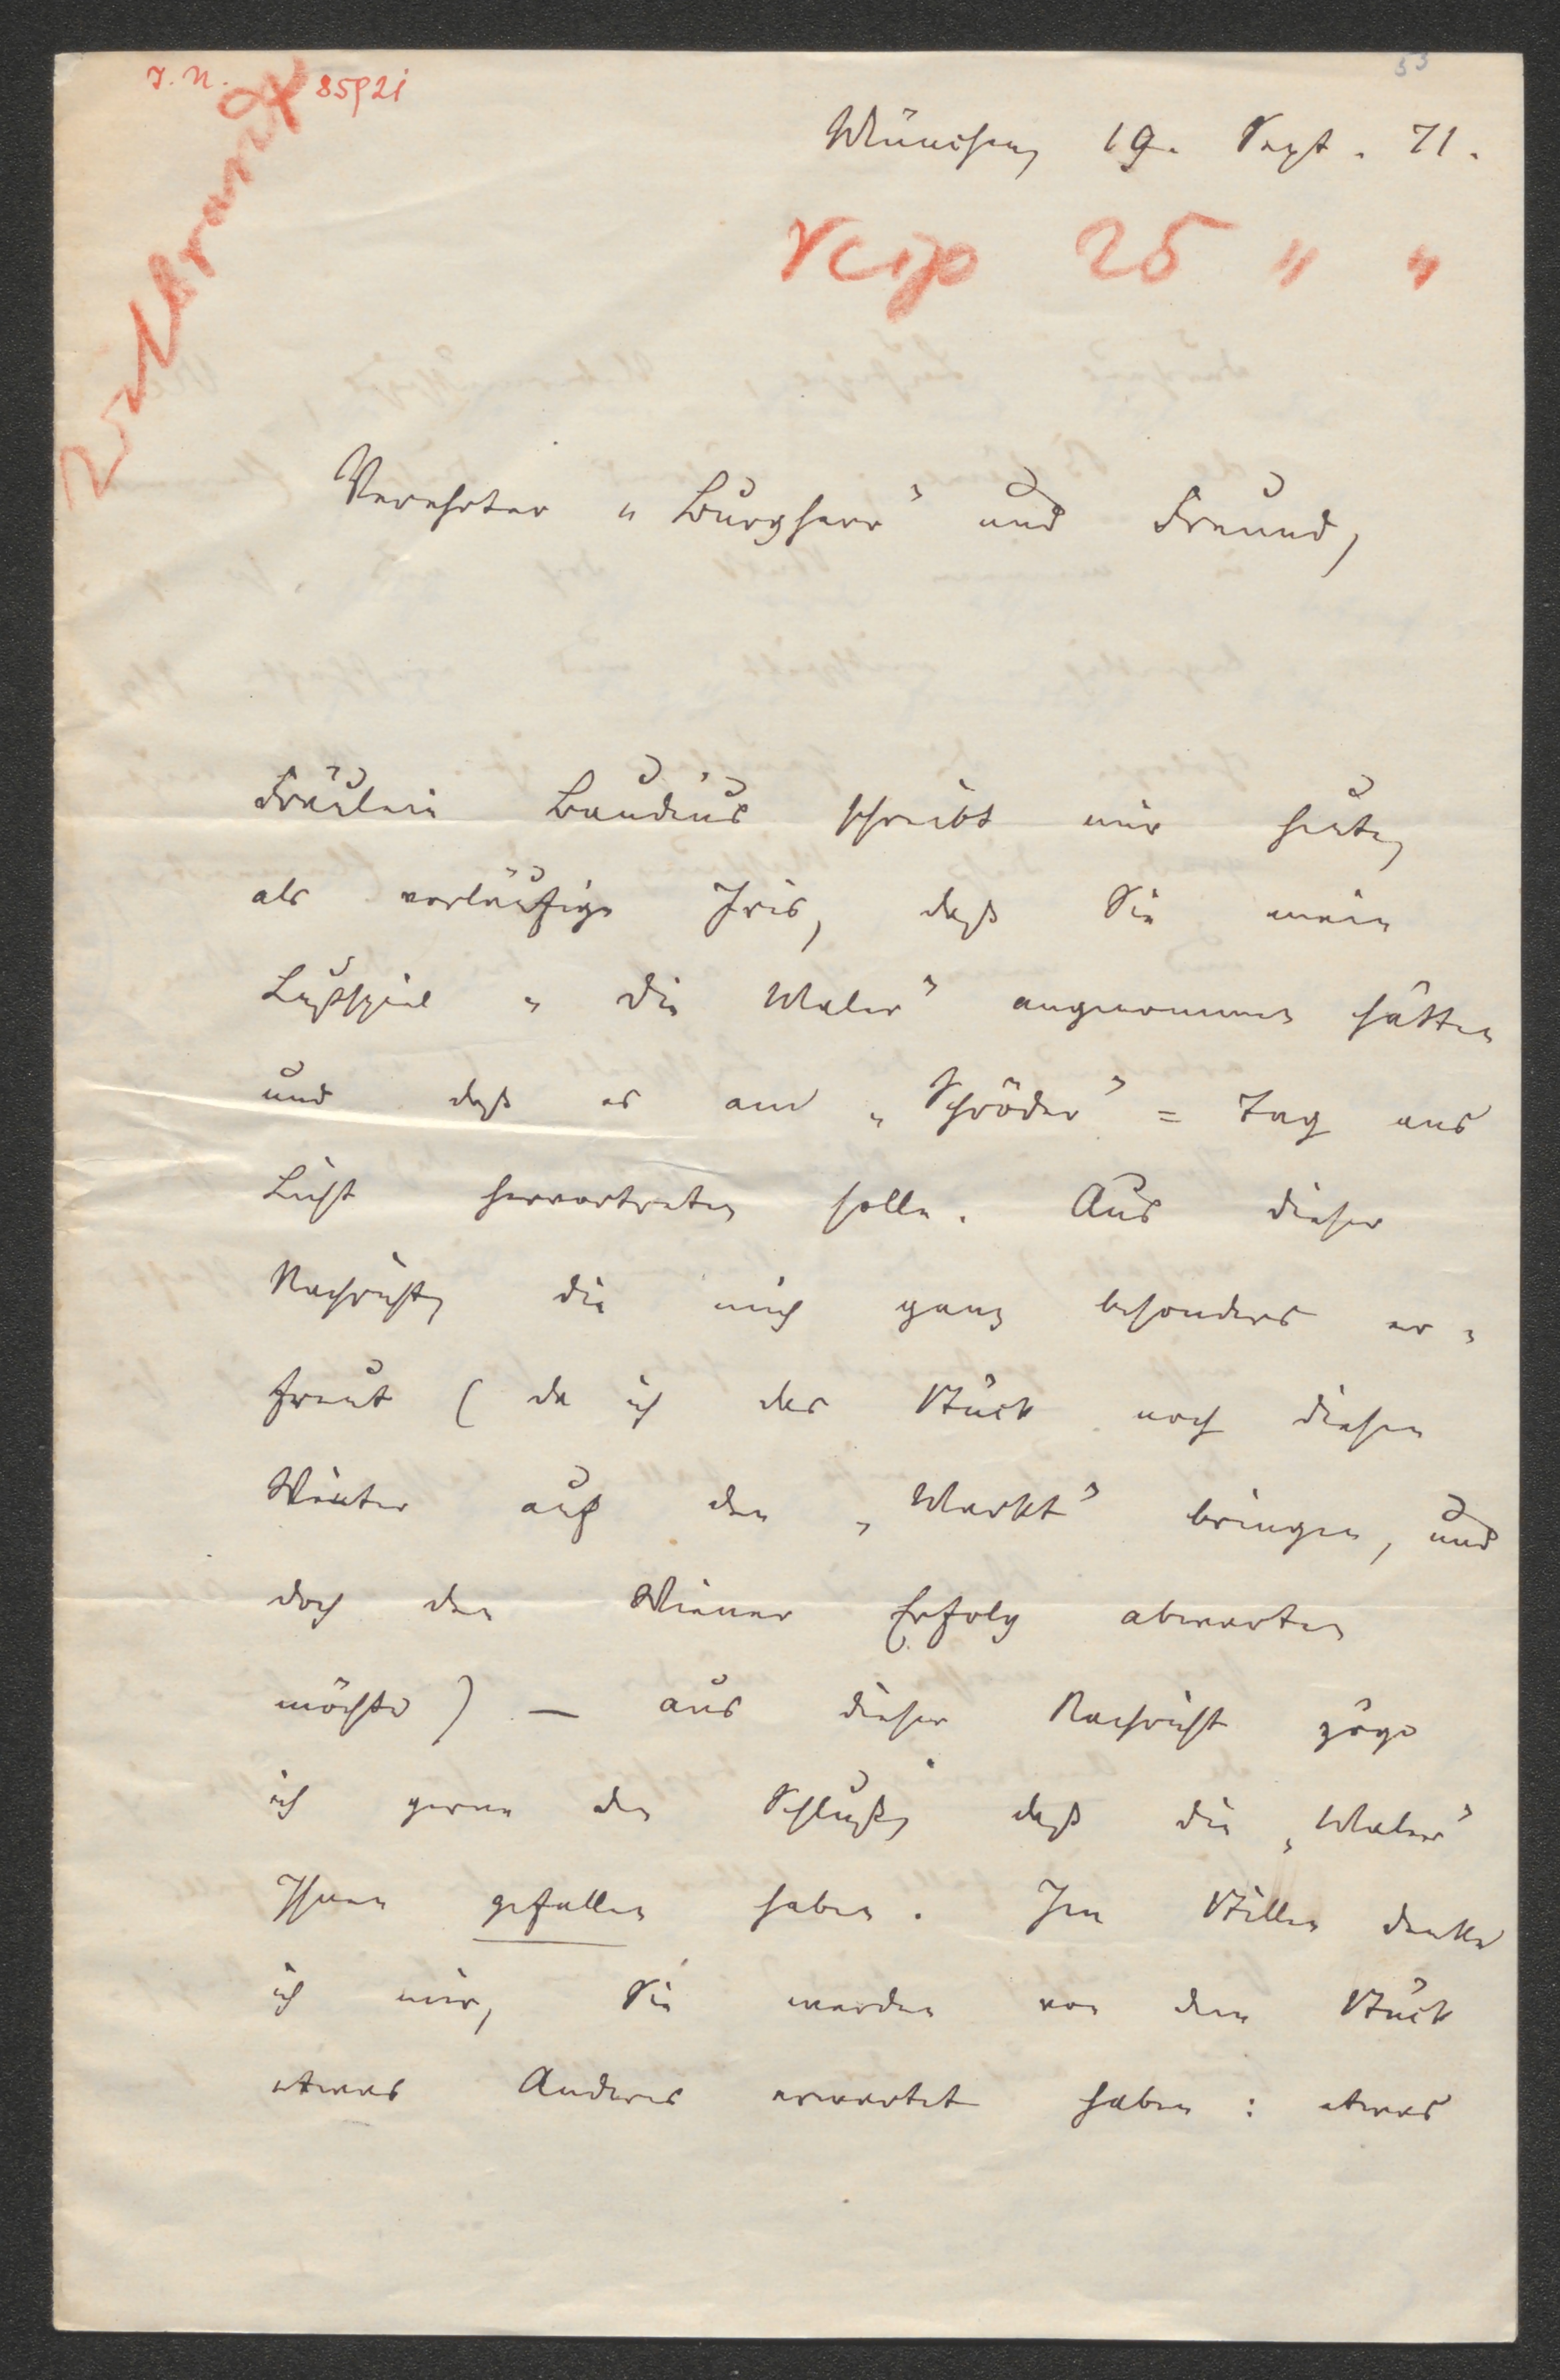 J.N. 85921
53
Wilbrandt
München, 19. Sept. 71.
Resp 25 " "
Verehrter „Burgherr“ und Freund,
Fräulein Baudius schreibt mir heute,
als vorläufige Iris, daß Sie mein
Lustspiel „die Maler“ angenommen hätten
und daß es am „Schröder“=Tag ans
Licht hervortreten solle. Aus dieser
Nachricht, die mich ganz besonders er=
freut (da ich das Stück noch diesen
Winter auf den „Markt“ bringen, und
doch den Wiener Erfolg abwarten
möchte) — aus dieser Nachricht zöge
ich gerne den Schluß, daß die „Maler“
Ihnen gefallen haben. Im Stillen denke
ich mir, Sie werden von dem Stück
etwas Anderes erwartet haben: etwas